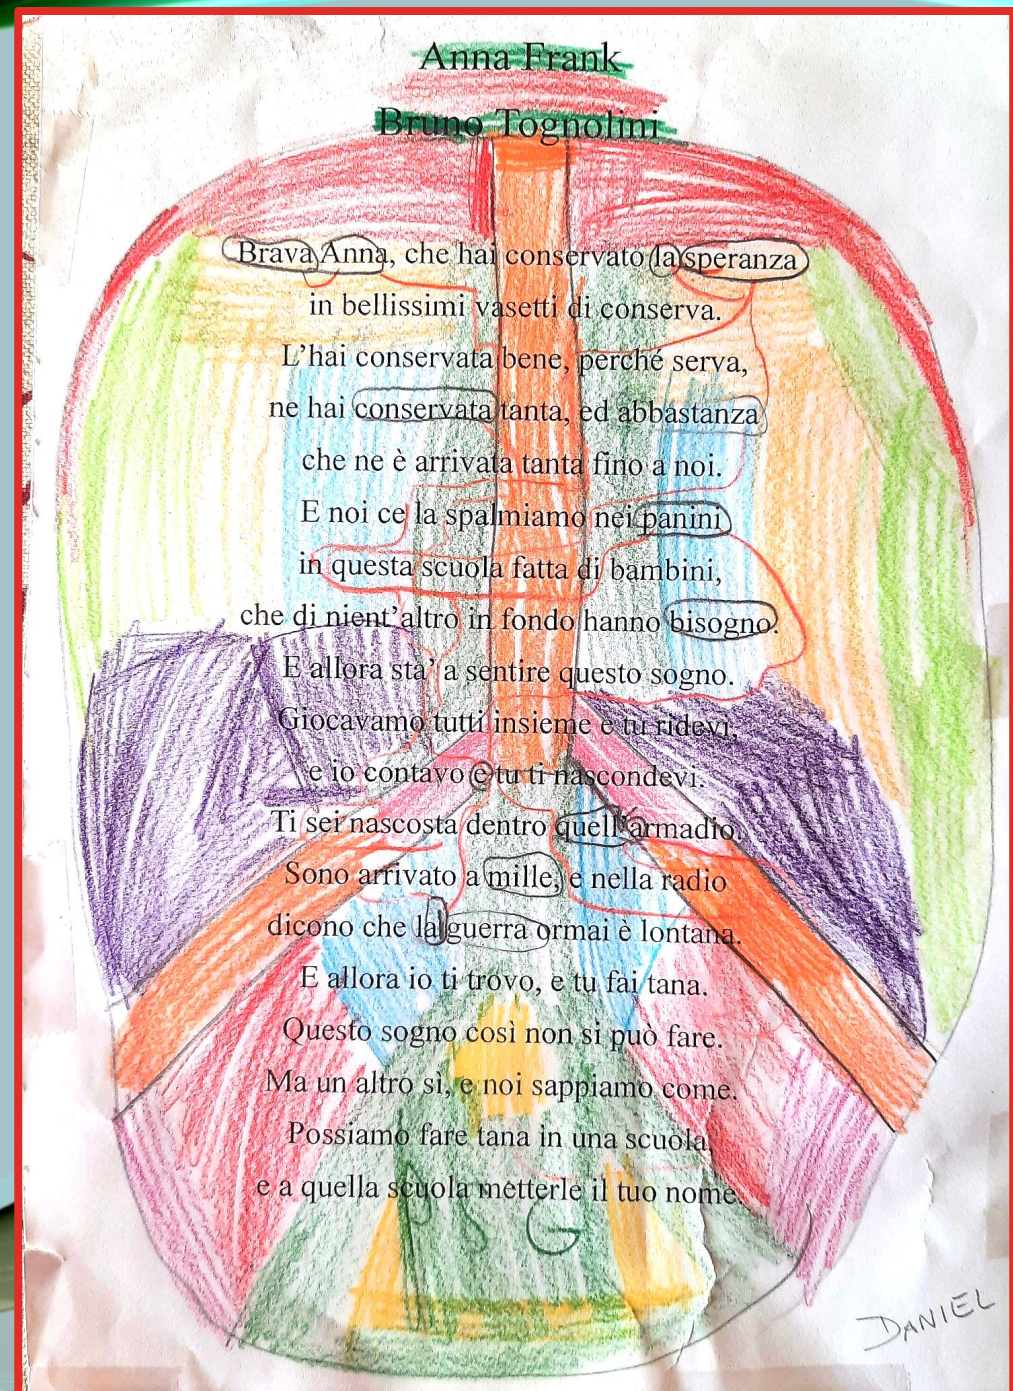 Anna Frank
Bruno Tognolini
Brava Anna, che hai conservato la speranza
in bellissimi vasetti di conserva.
L'hai conservata bene, perché serva,
ne hai conservata tanta, ed abbastanza
che ne è arrivata tanta fino a noi.
E noi ce la spalmiamo nei panini
in questa scuola fatta di bambini,
che di nient'altro in fondo hanno bisogno.
E allora sta' a sentire questo sogno.
Giocavamo tutti insieme e tu ridevi,
e io contavo e tu ti nascondevi.
Ti sei nascosta dentro quell'armadio.
Sono arrivato a mille, e nella radio
dicono che la guerra ormai è lontana.
E allora io ti trovo, e tu fai tana.
Questo sogno così non si può fare.
Ma un altro si, e noi sappiamo come.
Possiamo fare tana in una scuola,
e a quella scuola metterle il tuo nome.
PSG
DANIEL